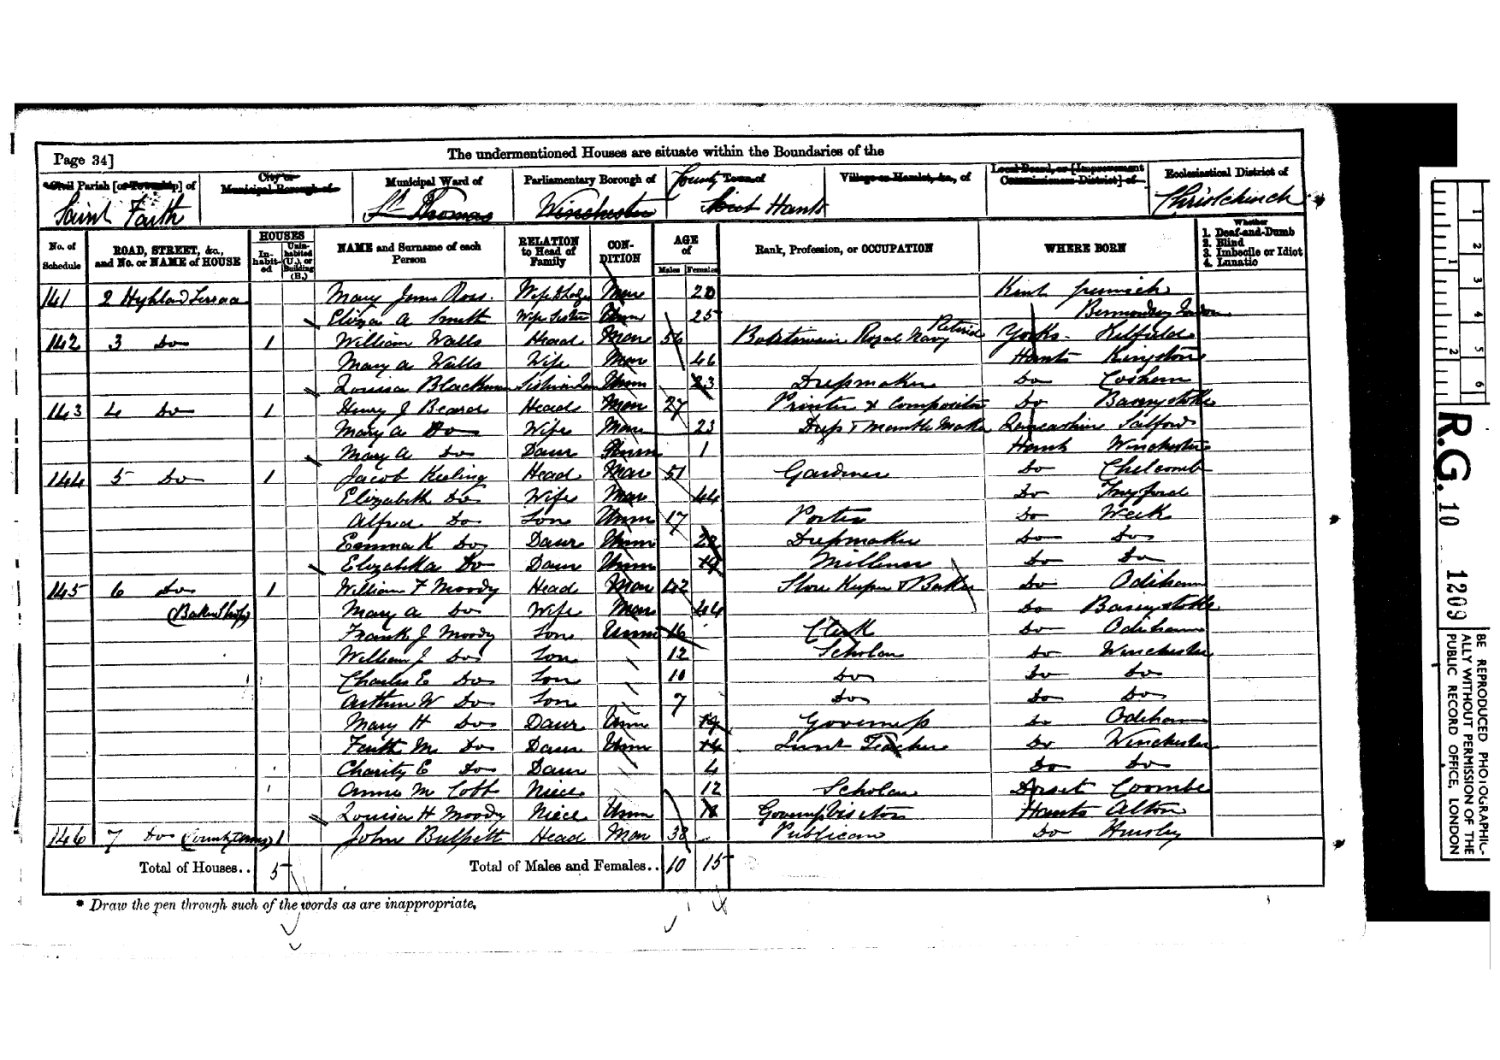 Page 34]
The undermentioned Houses are situate within the Boundaries of the
Civil Parish [or Township] of
Saint Faith
City or Municipal Borough of
Municipal Ward of
St Thomas
Parliamentary Borough of
Winchester
County Town of
Hants
Village or Hamlet, &c., of
Local Board, or [Improvement Commissioners District] of
Ecclesiastical District of
Christchurch
No. of Schedule ROAD, STREET, &c., and No. or NAME of HOUSE HOUSES Inhabited Uninhabited (U.), or Building (B.) NAME and Surname of each Person RELATION to Head of Family CONDITION AGE of Males Females Rank, Profession, or OCCUPATION WHERE BORN Whether 1. Deaf-and-Dumb 2. Blind 3. Imbecile or Idiot 4. Lunatic
141 2 Mary Jane Ross. Mar 20 Kent
Eliza A Smith Wifes Sister Unm 25 Bermondsey London
142 3 Do 1 William Walls Head Mar 56 Royal Navy Retired Yorks.
Mary A Walls Wife Mar 46 Hants Kingston
Louisa Unm 23 Dressmaker Do Cosham
143 4 Do 1 Henry J Head Mar 27 Printer & Compositor Do Basingstoke
Mary A Do Wife Mar 23 Dress & Mantle Maker Lancashire Salford
Mary A Do Daur Unm 1 Hants Winchester
144 5 Do 1 Jacob Keeling Head Mar 51 Gardner Do Chilcomb
Elizabeth Do Wife Mar 44 Do Twyford
Alfred Do Son Unm 17 Porter Do Week
Emma K Do Daur Unm Dressmaker Do Do
Elizabeth Do Daur Unm 19 Milliner Do Do
145 6 Do 1 William F Moody Head Mar 42 Store Keeper & Baker Do Odiham
(Bakers Shop) Mary A Do Wife Mar 44 Do Basingstoke
Frank J Moody Son Unm 16 Clerk Do Odiham
William J Do Son 12 Scholar Do Winchester
Charles E Do Son 10 Do Do Do
Arthur W Do Son 7 Do Do Do
Mary H Do Daur Unm 19 Governess Do Odiham
Faith M Do Daur Unm 14 Teacher Do Winchester
Charity E Do Daur 4 Do Do
Annie M Cobb Niece 12 Scholar Dorset Coombe
Louisa H Moody Niece Unm 18 Hants Alton
146 7 Do 1 John Bulpett Head Mar 38 Publican Do Hursley
Total of Houses.. 5 Total of Males and Females.. 10 15
* Draw the pen through such of the words as are inappropriate.
1 2 3 4 5 6
1 2
R.G. 10 1209
BE REPRODUCED PHOTOGRAPHIC-
ALLY WITHOUT PERMISSION OF THE
PUBLIC RECORD OFFICE, LONDON